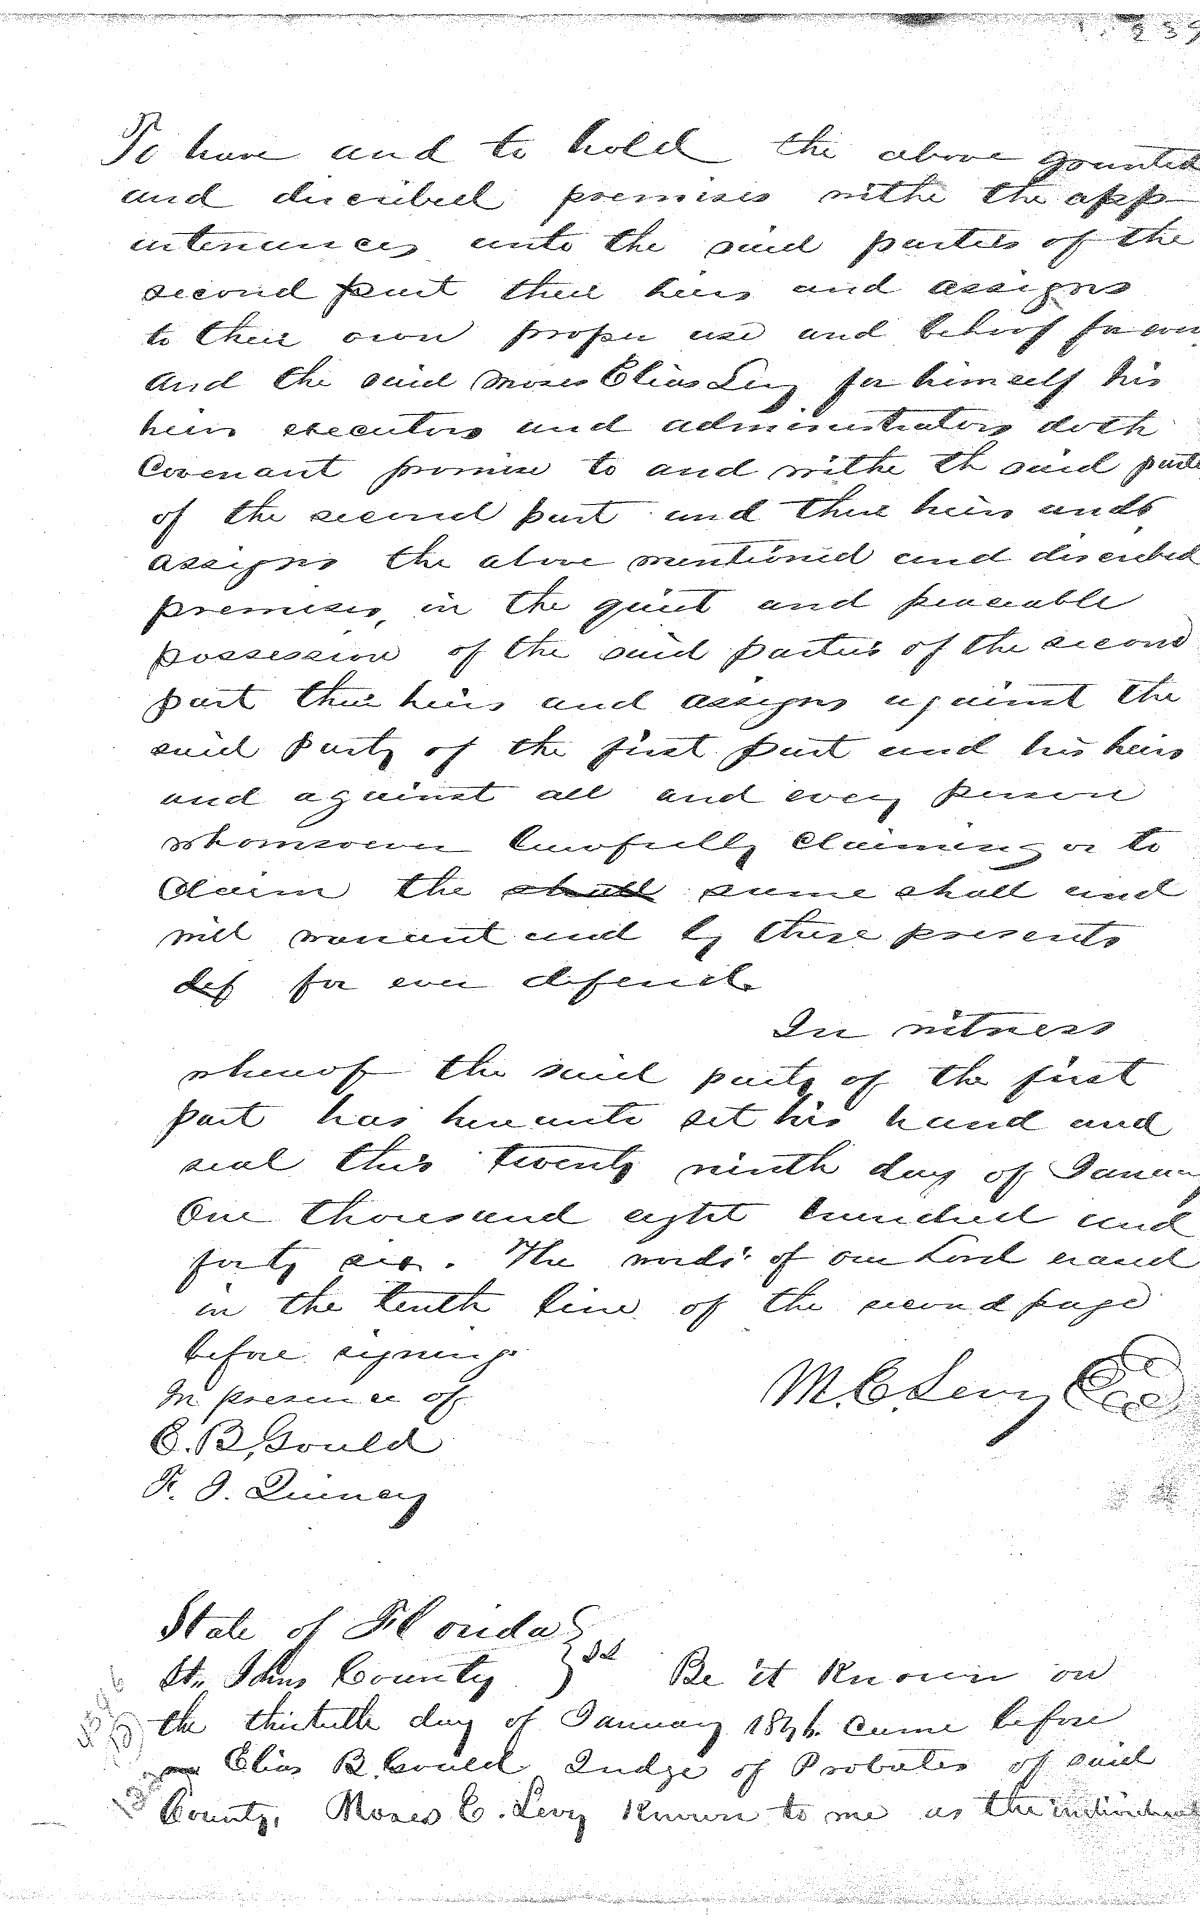 239
To have and to hold the above granted
and discribed premises withe the app
intenances unto the said parties of the
second part their heirs and assigns
to their own proper use and behoof for
and the said Moses Elias Levy for himself his
heirs executors and administrators doth
Covenant promise to and withe th said partie
of the second part and their heirs and
assigns the above mentioned and discribed
premises, in the quiet and peaceable
possession of the said parties of the second
part their heirs and assigns against the
said Party of the first part and his heirs
and against all and every person
whomsoever lawfully Claiming or to
Claim the shall same shall and
will warrant and by these presents
def for ever defend.
In witness
whereof the said party of the first
part has hereunto set his hand and
seal this twenty ninth day of January
One thousand eight hundred and
forty six. The words of our Lord erased
in the tenth line of the second page
before signing.
In presence of
M. E. Levy
E. B. Gould
F. J.
State of Florida
St. Johns County } SS Be it Known on
the thirtieth day of January 1846 came before
Elias B. Gould Judge of Probates of said
County, Moses E. Levy Known to me as the individual